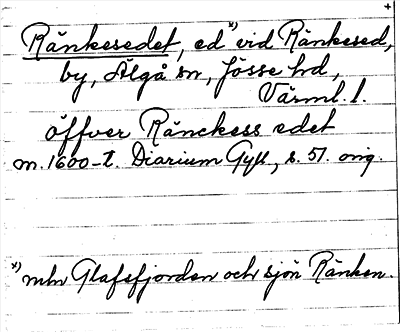 +
Ränkesedet, ed ˣ⁾ vid Ränkesed,
by, Älgå sn, Jösse hd,
Värml. l.
öffver Ränckess edet
m. 1600-t. Diarium Gyll, s. 57. orig.
ˣ⁾ mln Glafsfjorden och sjön Ränken.